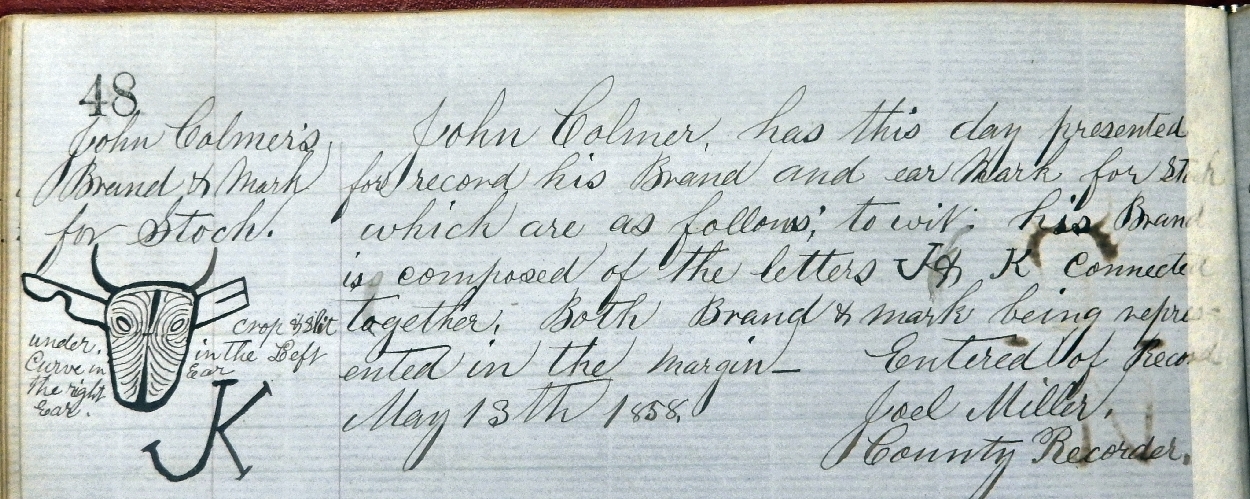 48
John Colmer's,
Brand & Mark
for Stock.
under.
Curve in
the right
Ear.
crop & Slit
in the Left
Ear
JK
John Colmer, has this day presented
for record his Brand and ear Mark for Stock
which are as follows; to wit: his Brand
is composed of the letters J & K Connected
together. Both Brand & mark being repre-
ented in the margin — Entered of Record
May 13th 1858.
Joel Miller,
County Recorder.